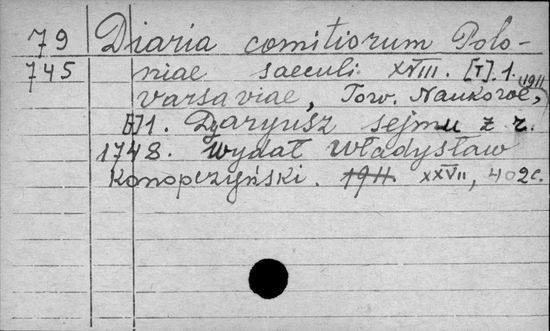 79 Diaria comitiorum Polo-
745 niae saeculi XVIII. [T]. 1.
Varsaviae, Tow. Naukowe, 1911
[T] 1. Dyaryusz sejmu z r.
1748. Wydał Władysław
Konopczyński. 1911. XXVII, 402 c.